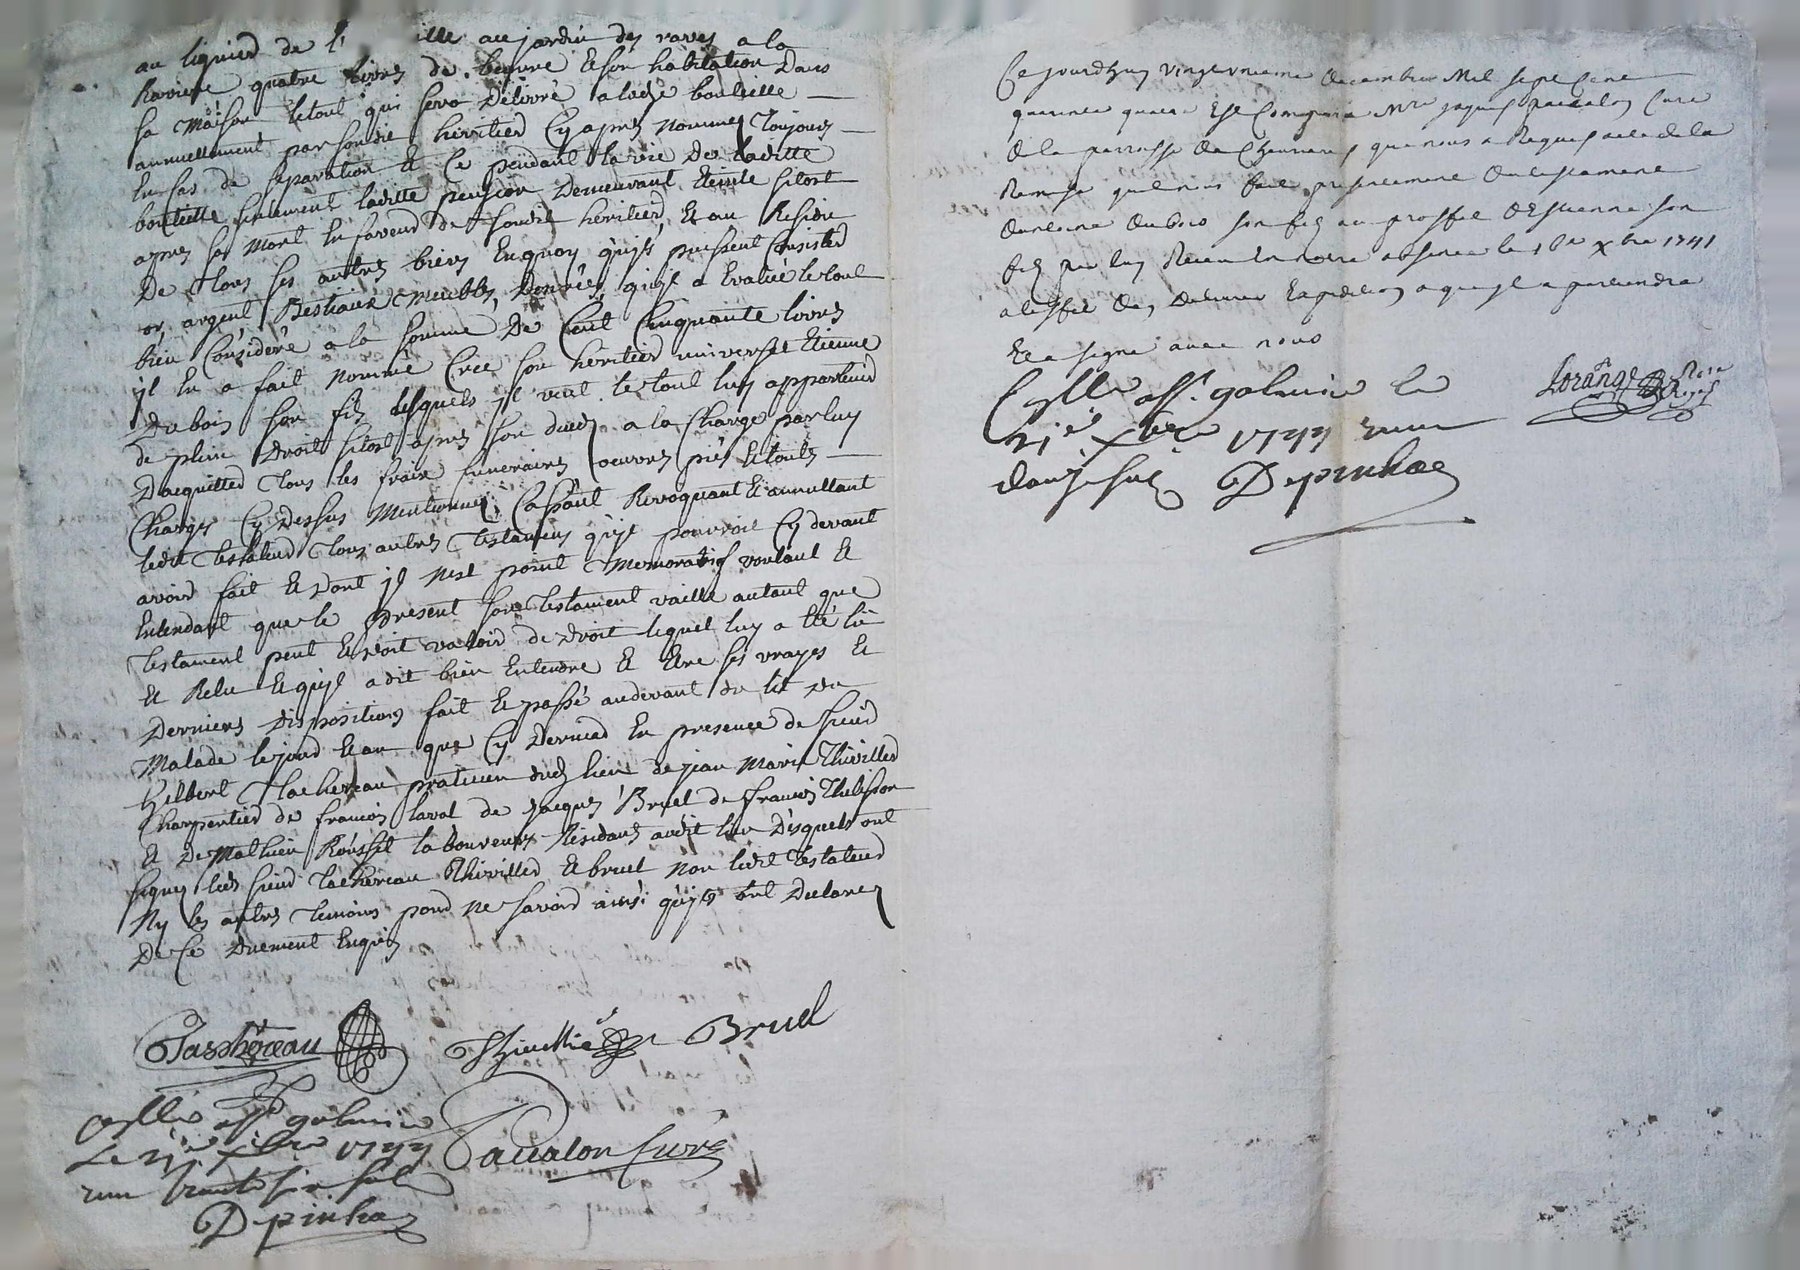 au ille au jardin des raves a la
Raviere quatre livres de beurre Et son habitation Dans
sa Maison letout qui sera Délivré a ladte bouteille
annuellement par sondit heritier Cy apres nommé Toujours
En Cas de separation Et Ce pendant la vie De laditte
bouteille seulement laditte pension Demeurant Eteinte sitost
apres sa Mort En faveur de sondit heritier, Et au Residu
De Tous ses autres biens Enquoy qu'ils puissent Consister
or, argent Bestiaux Meubles, Denrées, qu'jl a Evalué letout
bien Considéré a la somme De Cent Cinquante livres
jl En a fait nommé Créé son héritier universel Etienne
Dubois son fils desquels jl veut letout luy appartenir
de plein Droit sitost apres son deceds a la Charge par luy
Dacquitter Tous les frais funeraires oeuvres pies Et toutes
Charges Cy Dessus Mentionnez Cassant Revoquant Et annullant
ledit Testateur Tous autres Testamens qu'jl pouvroit Cy devant
avoir fait Et Dont jl nest point Memoratif voulant Et
Entendant que le present son Testament vaille autant que
Testament peut Et Doit valoir de Droit lequel luy a été lû
Et Relu Et qu'jl a dit bien Entendre Et Etre ses vrayes Et
Dernieres Dispositions fait Et passé audevant du lit du
Malade lejour Et an que Cy Derniere En presence de sieur
Gilbert Tachereau praticien dud lieu de jean Marie Thivillier
Charpentier de francois laval de Jacques Bruel de francois Thibision
Et De Mathieu Roussel laboureurs Résidans audit lieu Desquels ont
signez leds sieur Tachereau Thivillier Et bruel non ledit Testateur
Ny les autres Temoins pour ne savoir ainsi qu'jls ont Declarez
De Ce Duement Enquis
Taschereau Bruel
galmier
Le 21e xbre 1744
Pacalon Curé
Depinhac
Ce jourdhuy vingtunieme decembre Mil sept Cent
quarante quatre Est Comparu Mre jaques pacalon Curé
de la parroisse de que nous a Requis acte de la
Remise quil nous fait presentement du testament
dantoine dubois son fils au proffit dEstienne son
fils par luy Receu En notre absence le xbre 1741
aleffet den delivrer Expedition a qui jl apartiendra
Et a signé avec nous
galmier Le
21e xbre 1744
Depinhac
Lorange Nre Royal